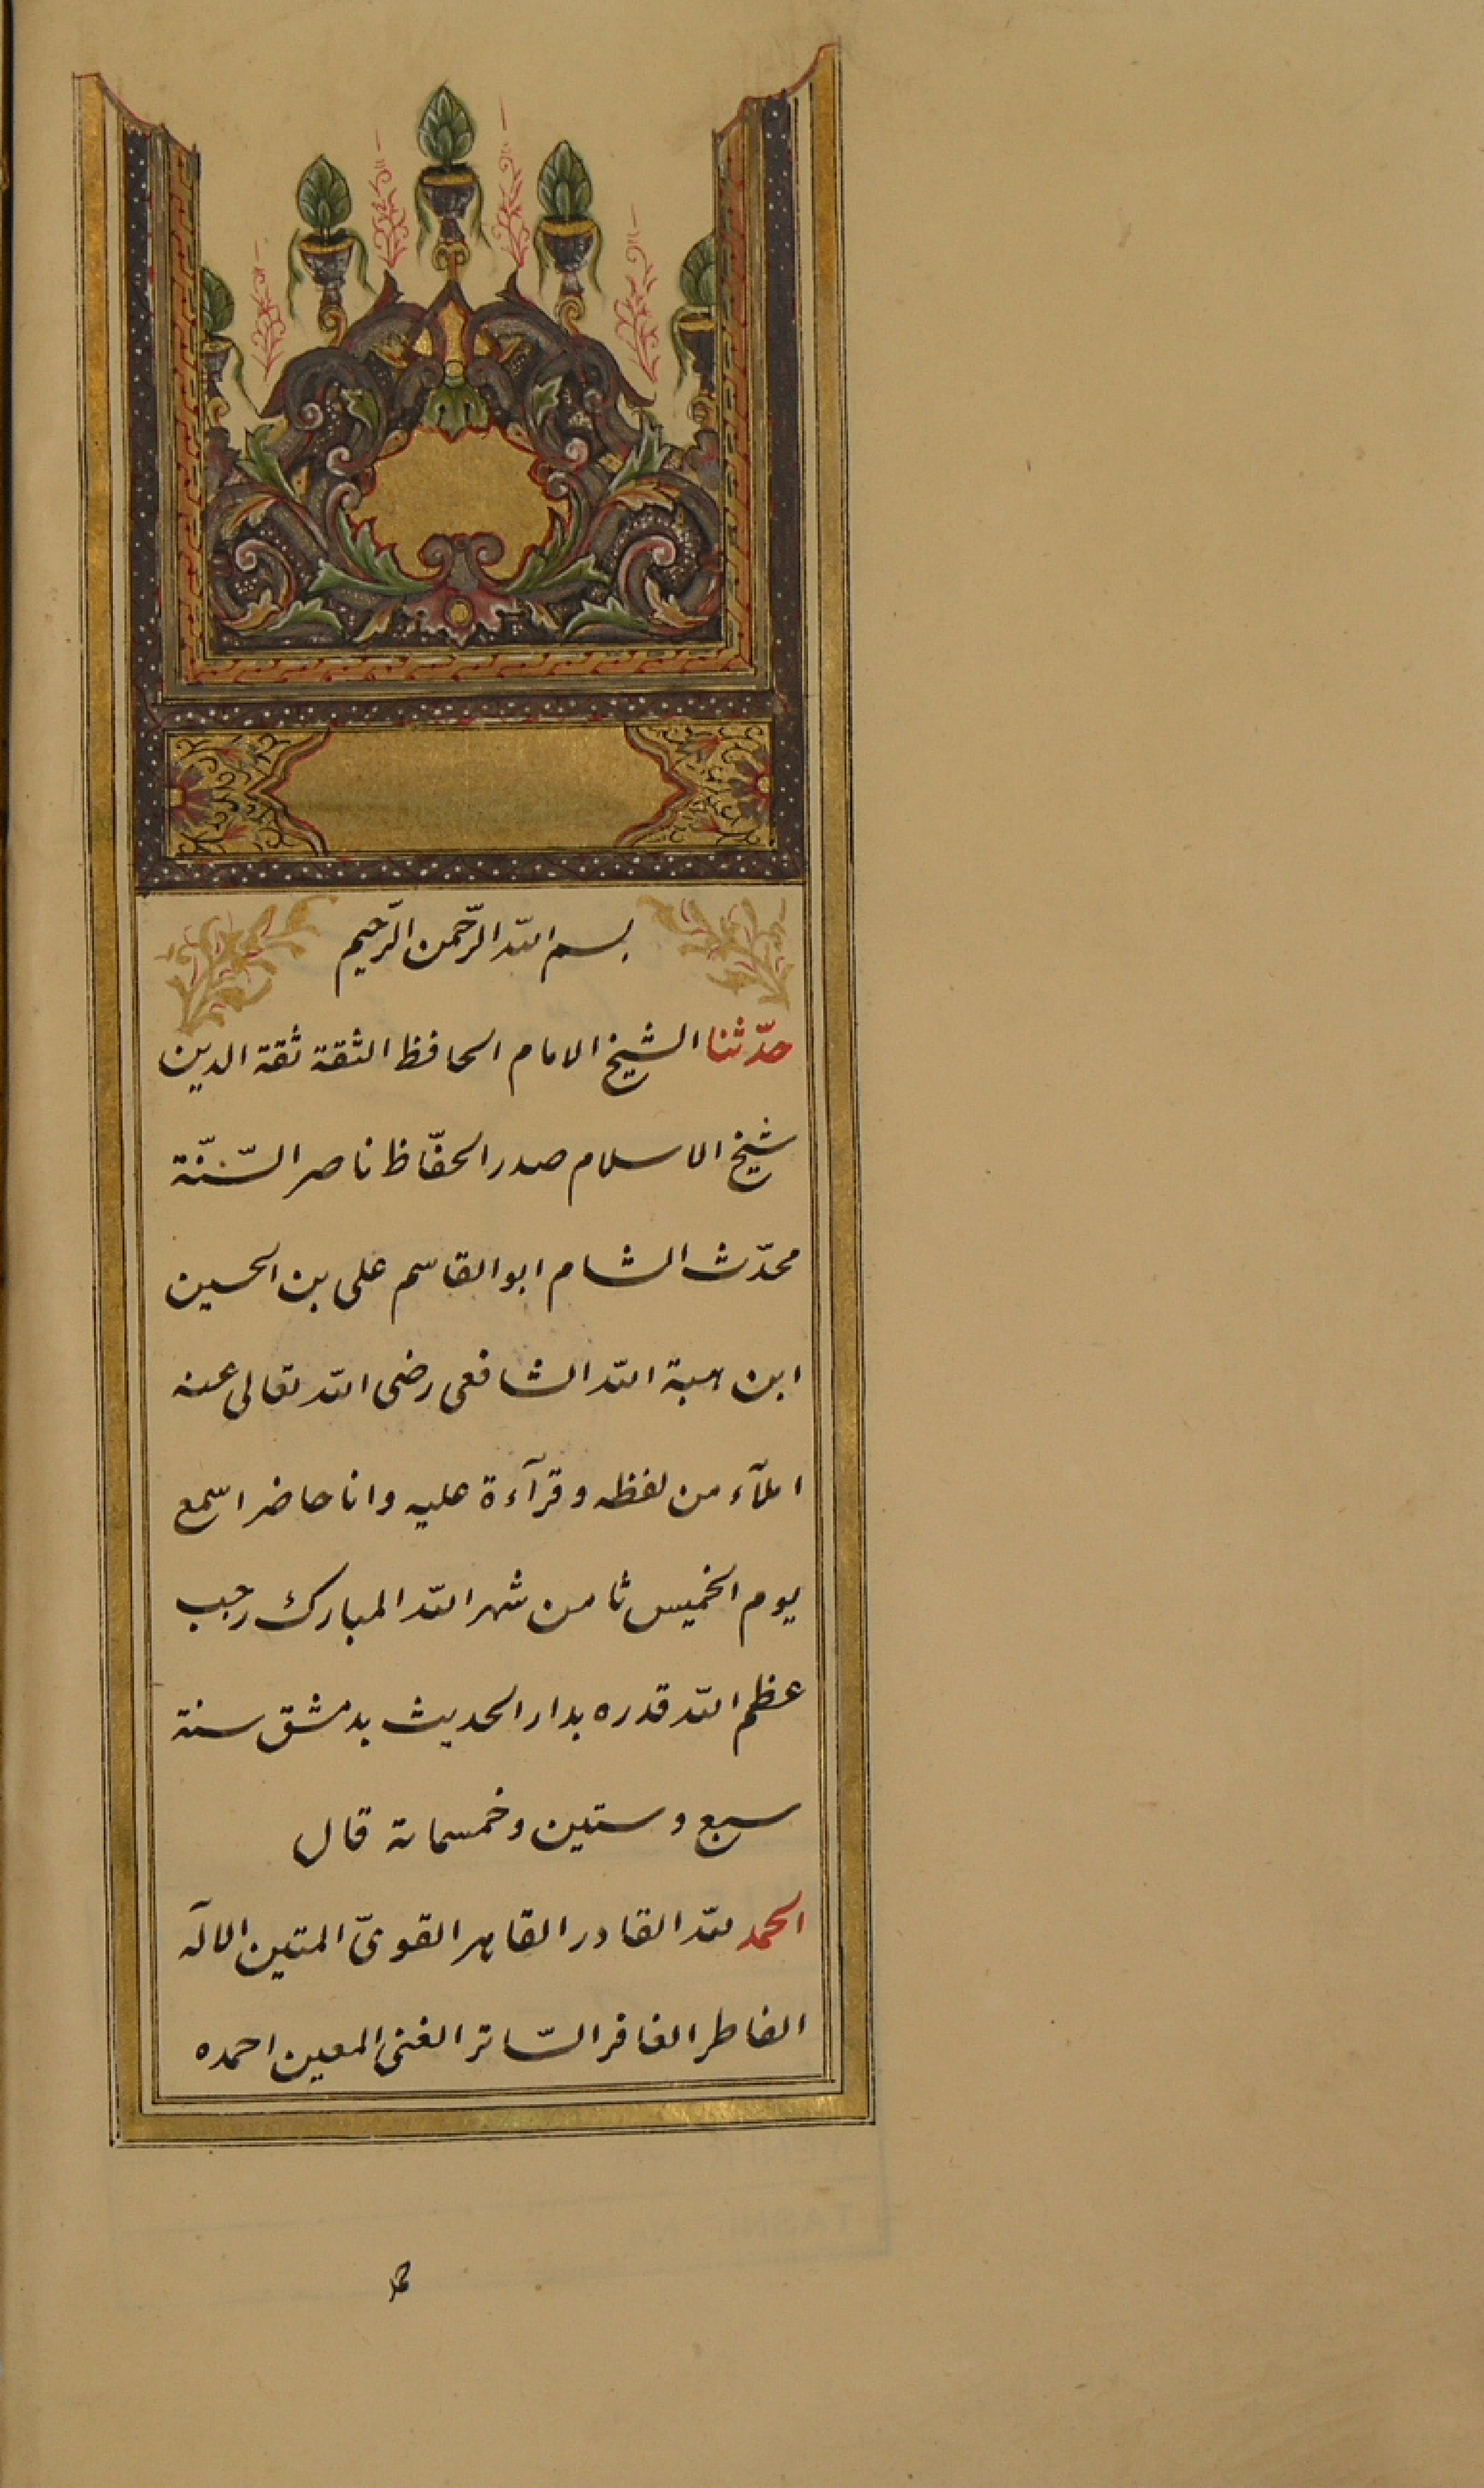 بسم الله الرّحمن الرّحيم
حدّثنا الشيخ الامام الحافظ الثقة ثقة الدين
شيخ الاسلام صدر الحفّاظ ناصر السّنّة
محدّث الشام ابو القاسم على بن الحسين
ابن هبة الله الشافعى رضى الله تعالى عنه
املآء من لفظه وقرآءة عليه وانا حاضر اسمع
يوم الخميس ثامن شهر الله المبارك رجب
عظم الله قدره بدار الحديث بدمشق سنة
سبع وستين وخمسمائة قال
الحمد لله القادر القاهر القوىّ المتين الاله
الفاطر الغافر السّاتر الغنى المعين احمده